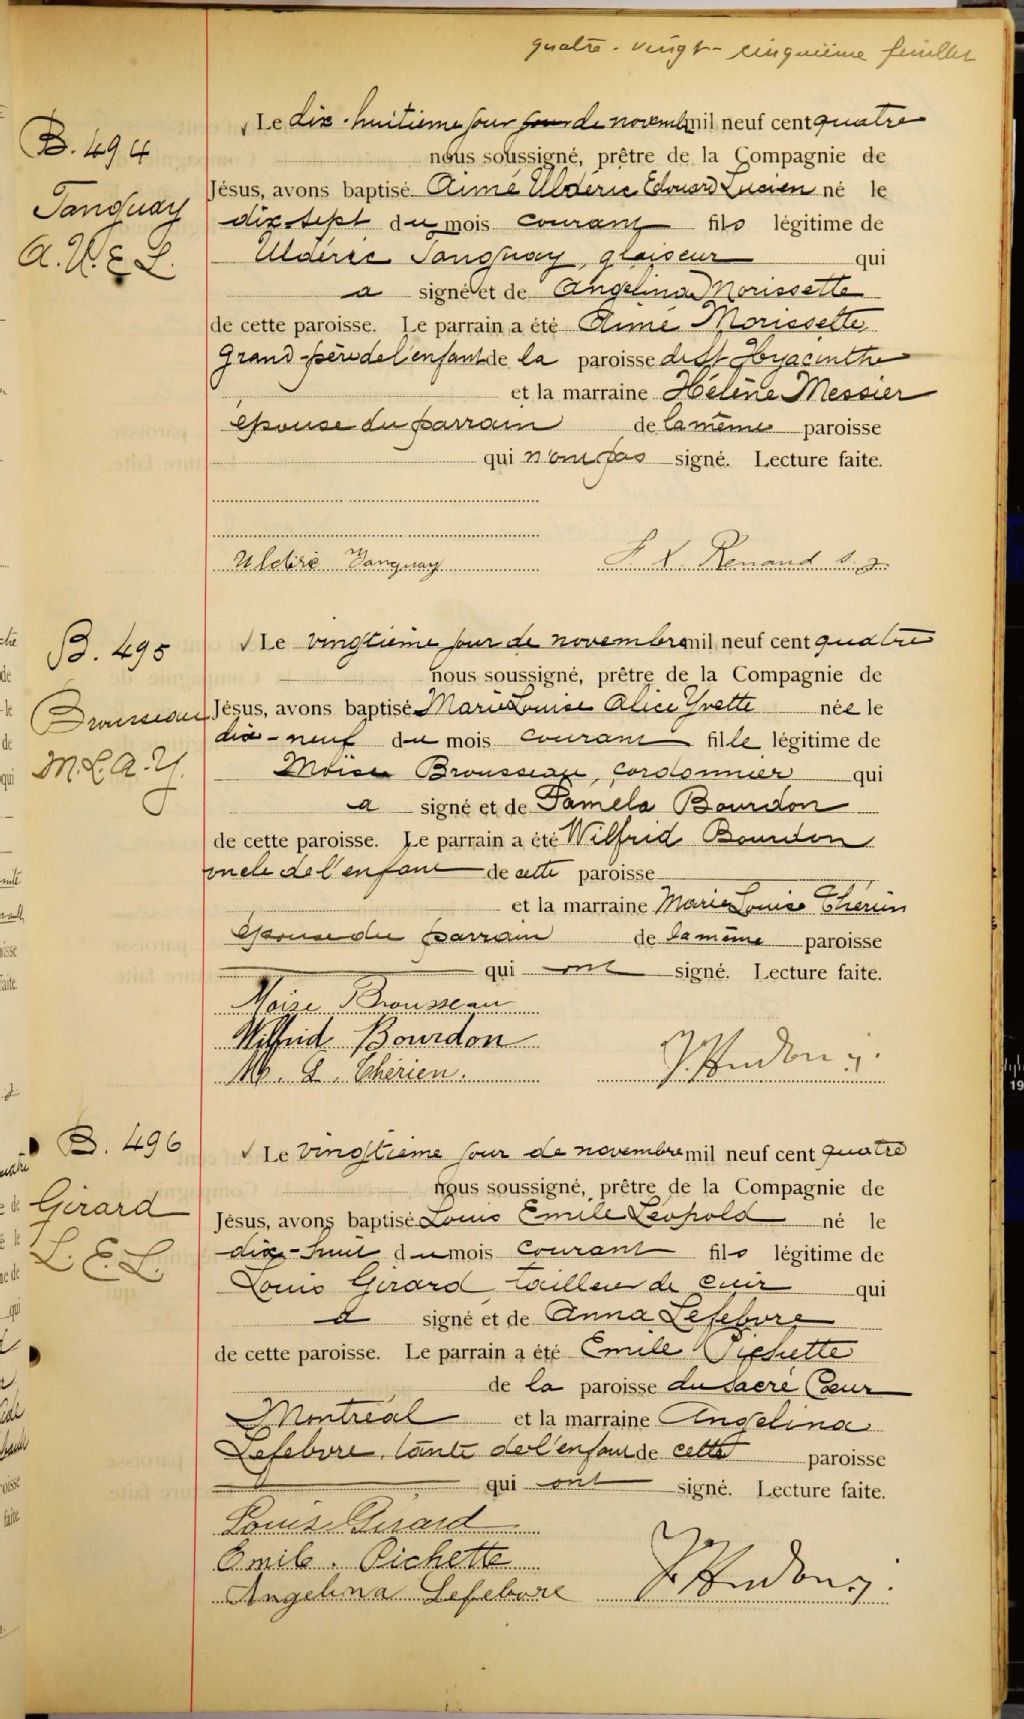 quatre-vingt-cinquième feuillet
B. 494
Tanguay
A. U. E L.
√ Le dix-huitième jour jour de novemb mil neuf cent quatre
nous soussigné, prêtre de la Compagnie de
Jésus, avons baptisé Aimé Uldéric Edouard Lucien né le
dix-sept du mois courant fils légitime de
Uldéric Tanguay, glaiseur qui
a signé et de Angelina Morissette
de cette paroisse. Le parrain a été Aimé Morissette
Grand-père de l'enfant de la paroisse de St Hyacinthe
et la marraine Hélène Messier
épouse du parrain de la même paroisse
qui n'ont pas signé. Lecture faite.
Uldéric Tanguay F. X. Renaud s. j.
B. 495
Brousseau
M. L. A. Y.
√ Le vingtième jour de novembre mil neuf cent quatre
nous soussigné, prêtre de la Compagnie de
Jésus, avons baptisé Marie Louise Alice Yvette née le
dix-neuf du mois courant fille légitime de
Moïse Brousseau, cordonnier qui
a signé et de Paméla Bourdon
de cette paroisse. Le parrain a été Wilfrid Bourdon
oncle de l'enfant de cette paroisse
et la marraine Marie Louise Thérien
épouse du parrain de la même paroisse
qui ont signé. Lecture faite.
Moise Brousseau
Wilfrid Bourdon
M. L. Thérien. J. Hudon j.
B. 496
Girard
L. E. L.
√ Le vingtième jour de novembre mil neuf cent quatre
nous soussigné, prêtre de la Compagnie de
Jésus, avons baptisé Louis Emile Léopold né le
dix-huit du mois courant fils légitime de
Louis Girard tailleur de cuir qui
a signé et de Anna Lefebvre
de cette paroisse. Le parrain a été Emile Pichette
de la paroisse du Sacré Cœur
Montréal et la marraine Angelina
Lefebvre, tante de l'enfant de cette paroisse
qui ont signé. Lecture faite.
Louis Girard
Emile. Pichette
Angelina Lefebvre J. Hudon j.